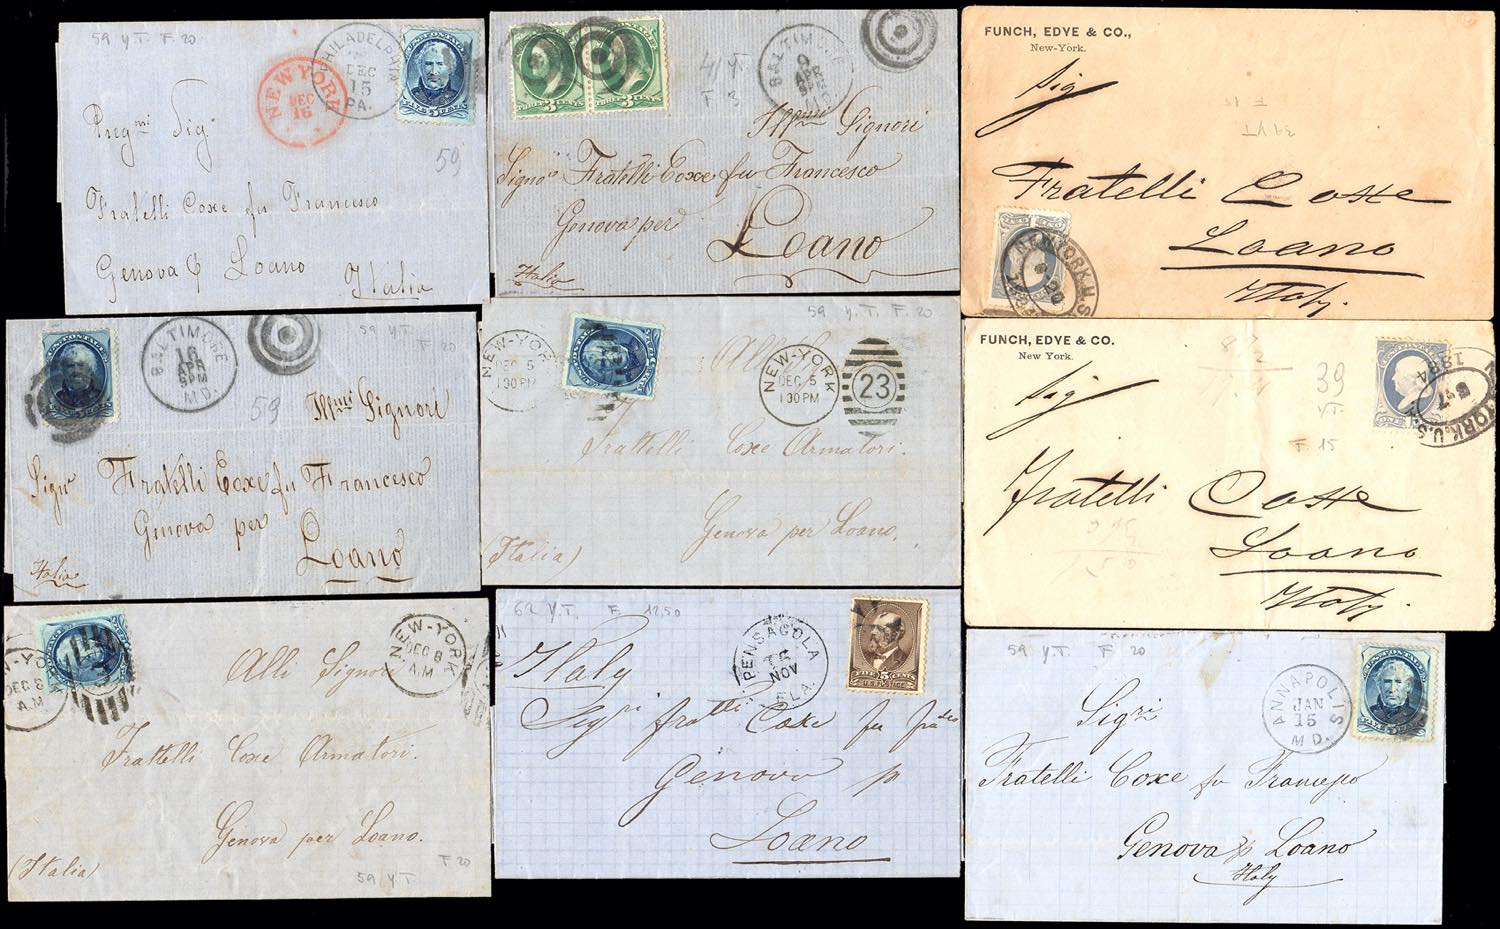 59 Y.T. F. 20
PHILADELPHIA
DEC
15
PA.
NEW YORK
DEC
16
59
Pregmi Sig.
Fratelli Coxe fu Francesco
Genova p Loano
Italia
THREE 3 CENTS
THREE 3 CENTS
41 Y.T.
F. 3
BALTIMORE
9
APR
M.D.
Illmi Signori
Signo Fratelli Coxe fu Francesco
Genova per
Loano
Italia
FUNCH, EDYE & CO.,
New-York.
Sig
F 15
39 YT
Fratelli Coxe
Loano
Italy.
NEW YORK. U.S.
59 Y.T.
F 20
BALTIMORE
16
APR
5PM
M D.
59
Illmi Signori
Signo Fratelli Coxe fu Francesco
Genova per
Loano
Italia
59 Y. T. F. 20
NEW-YORK
DEC 5
1 30 PM
NEW-YORK
DEC 5
1 30 PM
23
Fratelli Coxe Armatori.
Genova per Loano.
(Italia)
FUNCH, EDYE & CO.
New York.
Sig
39
YT.
F. 15
YORK. U.S.
Fratelli Coxe
Loano
Italy.
NEW-YORK
DEC 8
A.M
DEC 8
A.M
Alli Signori
Fratelli Coxe Armatori.
Genova per Loano.
(Italia)
F 20
59 Y T.
62 Y.T. F. 12,50
PENSACOLA
15
NOV
FLA.
FIVE 5 CENTS
U.S. POSTAGE
Italy
fratlli Coxe fu
Genova p
Loano
59 Y T. F 20
ANNAPOLIS
JAN
15
M D.
Sigri
Fratelli Coxe fu Francesco
Genova p Loano
Italy